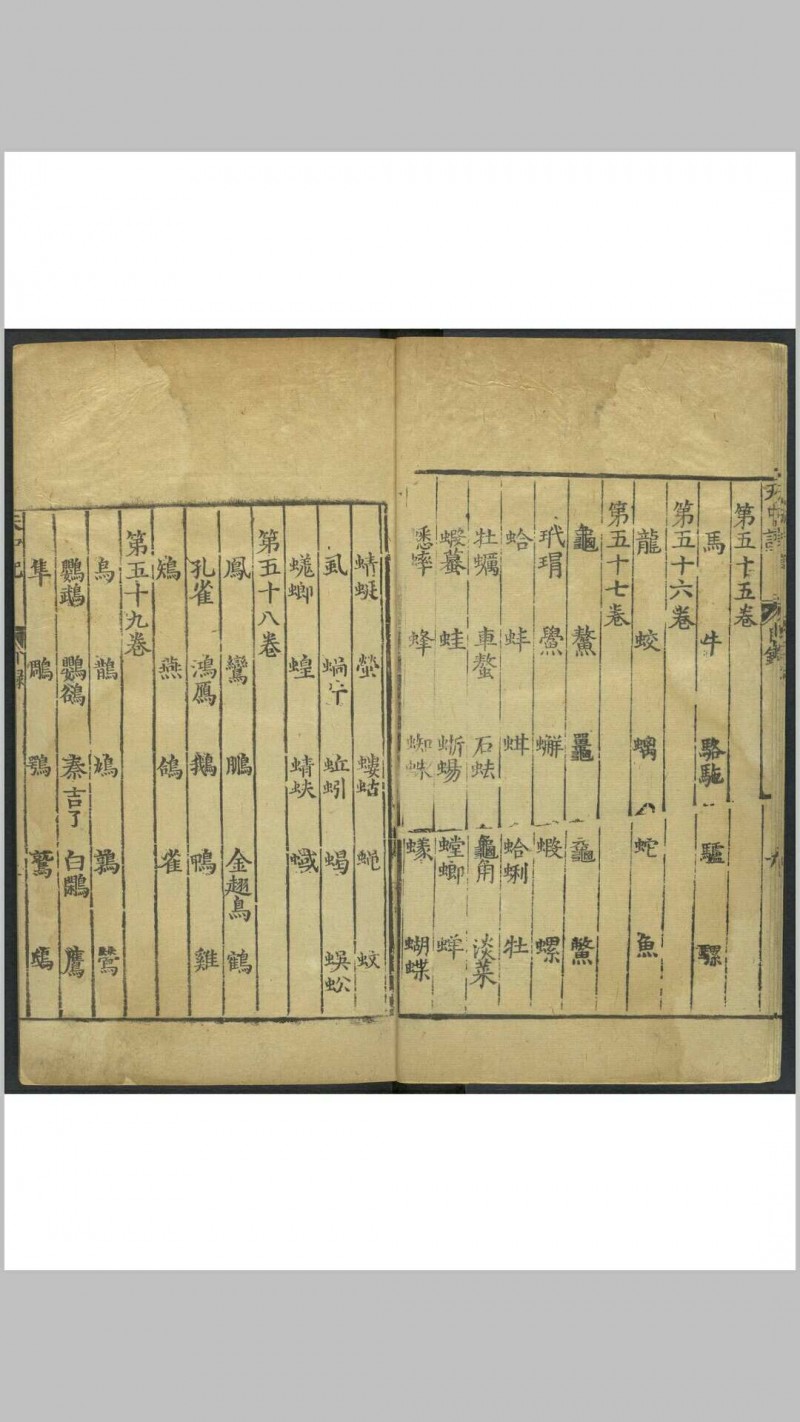 第五十五卷
馬 牛 駱駞 驢 騾
第五十六卷
龍 蛟 螭 蛇 魚
第五十七卷
龜 鰲 鼉 鱉
玳瑁 鱟 蠏 蝦 螺
蛤 蚌 蚶 蛤蜊 牡
牡蠣 車螯 石蚨 龜角 淡菜
蝦蟇 蛙 蜥蜴 螳螂 蟬
蟋蟀 蜂 蜘蛛 蠓 蝴蝶
蜻蜓 螢 螻蛄 蝇 蚊
虱 蚯蚓 蝎 蜈蚣
蜣螂 蝗 蜻蚨 蜮
第五十八卷
鳳 鸞 鵬 金翅鳥 鶴
孔雀 鴻鴈 鵝 鴨 雞
鴆 燕 鴿 雀
第五十九卷
烏 鵲 鳩 鶉 鶯
鸚鵡 鸚鵒 秦吉了 白鷳 鷹
隼 鵰 鶚 鷲 鴟
天中記 目錄